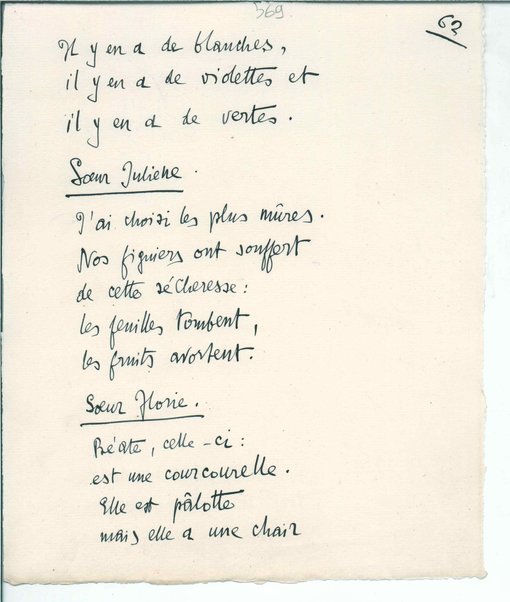 569
62
Il y en a de blanches,
il y en a de violettes et
il y en a de vertes.
Sœur Juliene.
J'ai choisi les plus mûres.
Nos figuiers ont souffert
de cette sécheresse :
les feuilles tombent,
les fruits avortent.
Sœur Florie.
Béate, celle-ci :
est une courcourelle.
Elle est pâlotte
mais elle a une chair